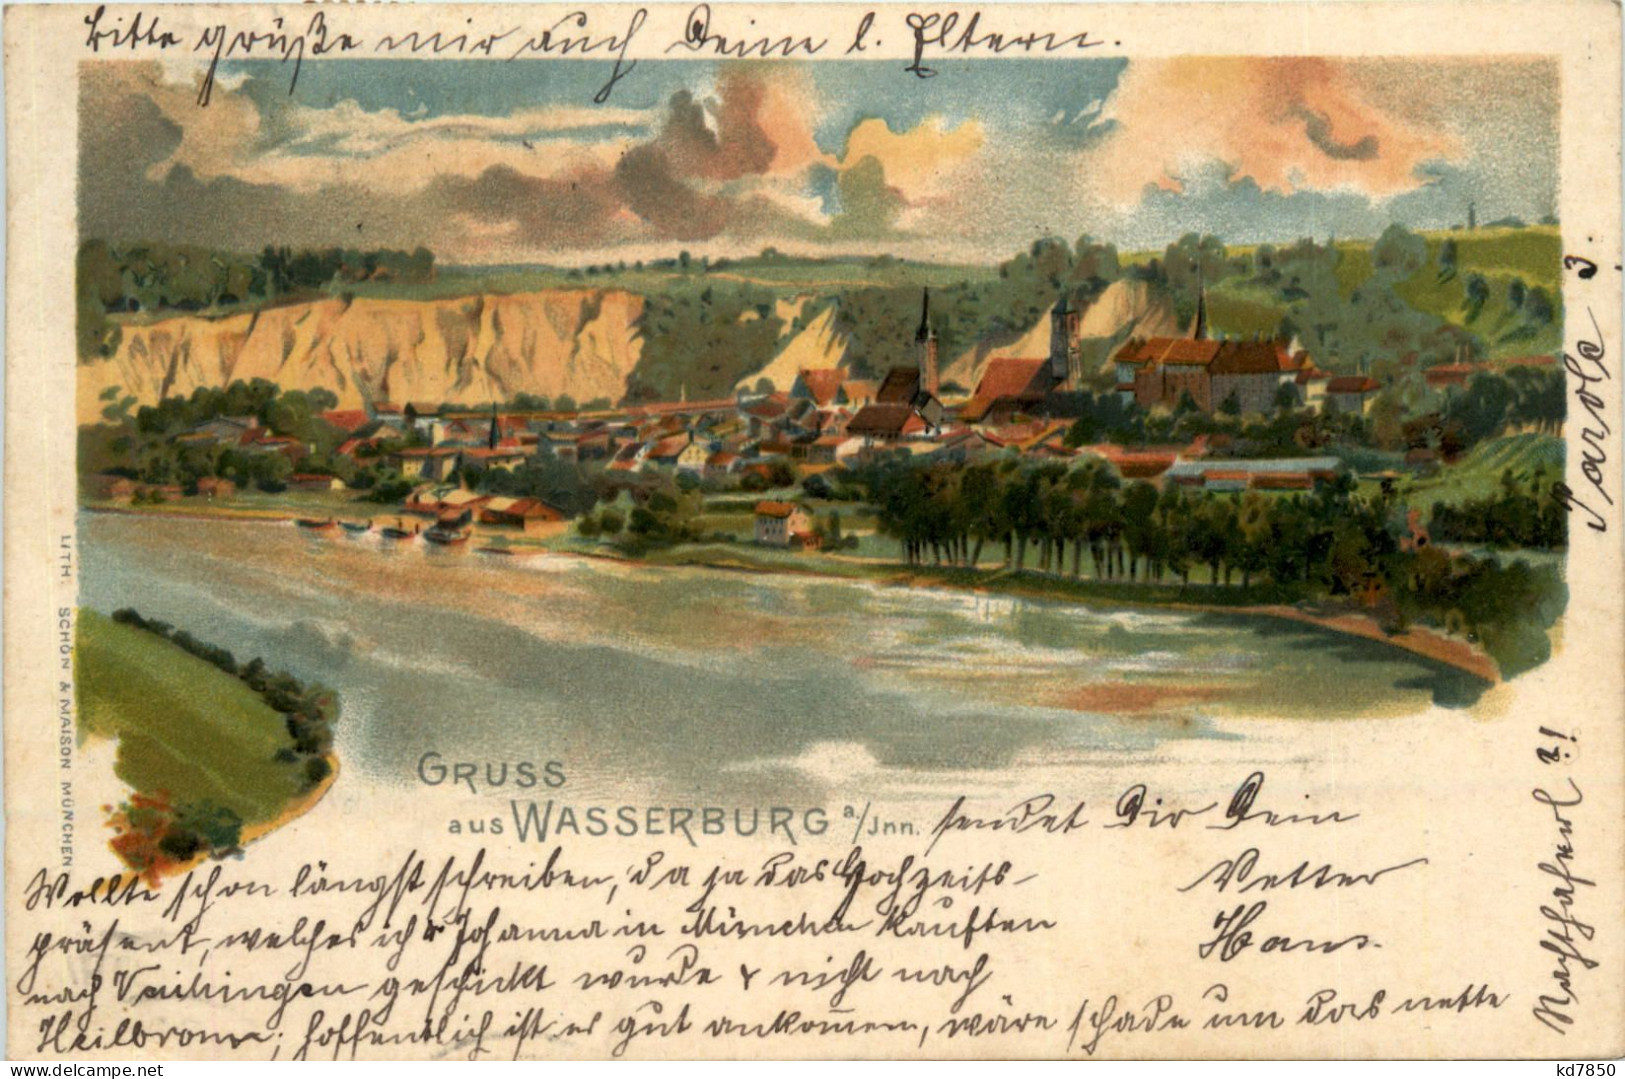 Bitte grüße mir auch Deine l. Eltern.
GRUSS
aus WASSERBURG a/Jnn. sendet Dir Dein
Vetter
Hans.
Wollte schon längst schreiben, da ja das Hochzeits-
präsent, welches ich & Johanna in München kauften
nach Vaihingen geschickt wurde & nicht nach
Heilbronn; hoffentlich ist es gut ankom̅en, wäre schade um das nette
Parole 3.
LITH. SCHÖN & MAISON MÜNCHEN
delcampe.net
kd7850